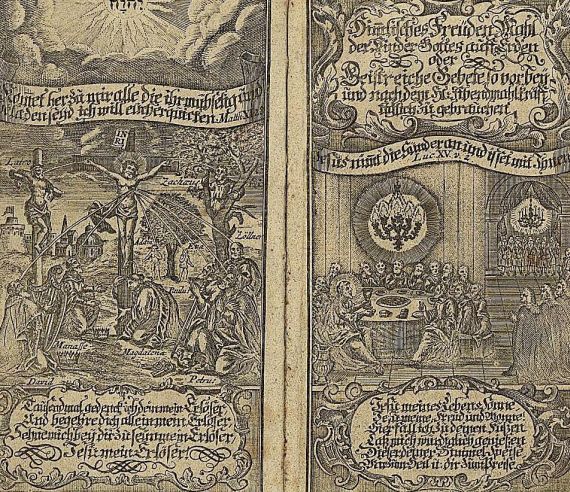 יהוה
Kom̄et her zu mir alle die ihr mühselig und
laden seyd ich will euch erquicken. Matth. XI.
IN
RI
Zachæus
Adam
Zöllner
Manasse
Magdalena
David
Petrus
Tausendmal gedenck ich dein mein Erlöser
Und begehre dich allein mein Erlöser
Sehne mich bey dir zu sein mein Erlöser
Jesu mein Erlöser!
Himlisches Freuden Mahl
der Kinder Gottes auff Erden
oder
Geistreiche Gebete so vor bey
und nach dem Hl. Abendmahl kräff
zu gebrauchen
Jesus nim̄t die Sünder an und isset mit Ihnen
Luc. XV. v. 2
Jesu meines Lebens Sonne
Jesu meine Freud und Wonne
Hier fall ich zu deinen Füßen
Laß mich würdiglich genießen
Dieser deiner Himmel Speise
Mir zum Heil u. dir zum Preise